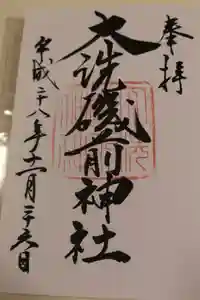 奉拝
大洗磯前神社
平成二十八年十二月二十六日